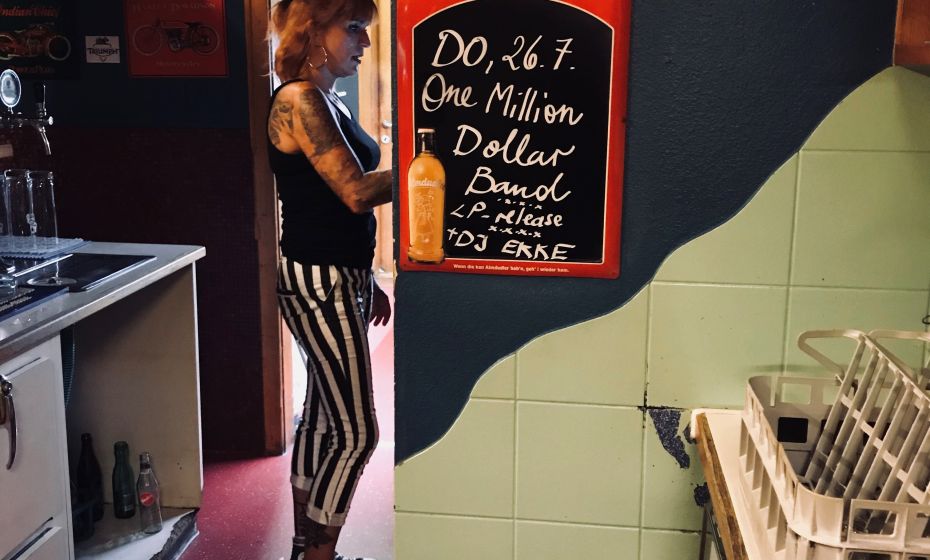 Indian Chief
HARLEY-DAVIDSON
TRIUMPH
Motorcycles
DO, 26. 7.
One Million
Dollar
Band
x-x-x
LP-release
x-x-x-x
+DJ EKKE
Almdudler
Wenn die kan Almdudler hab'n, geh' i wieder ham.